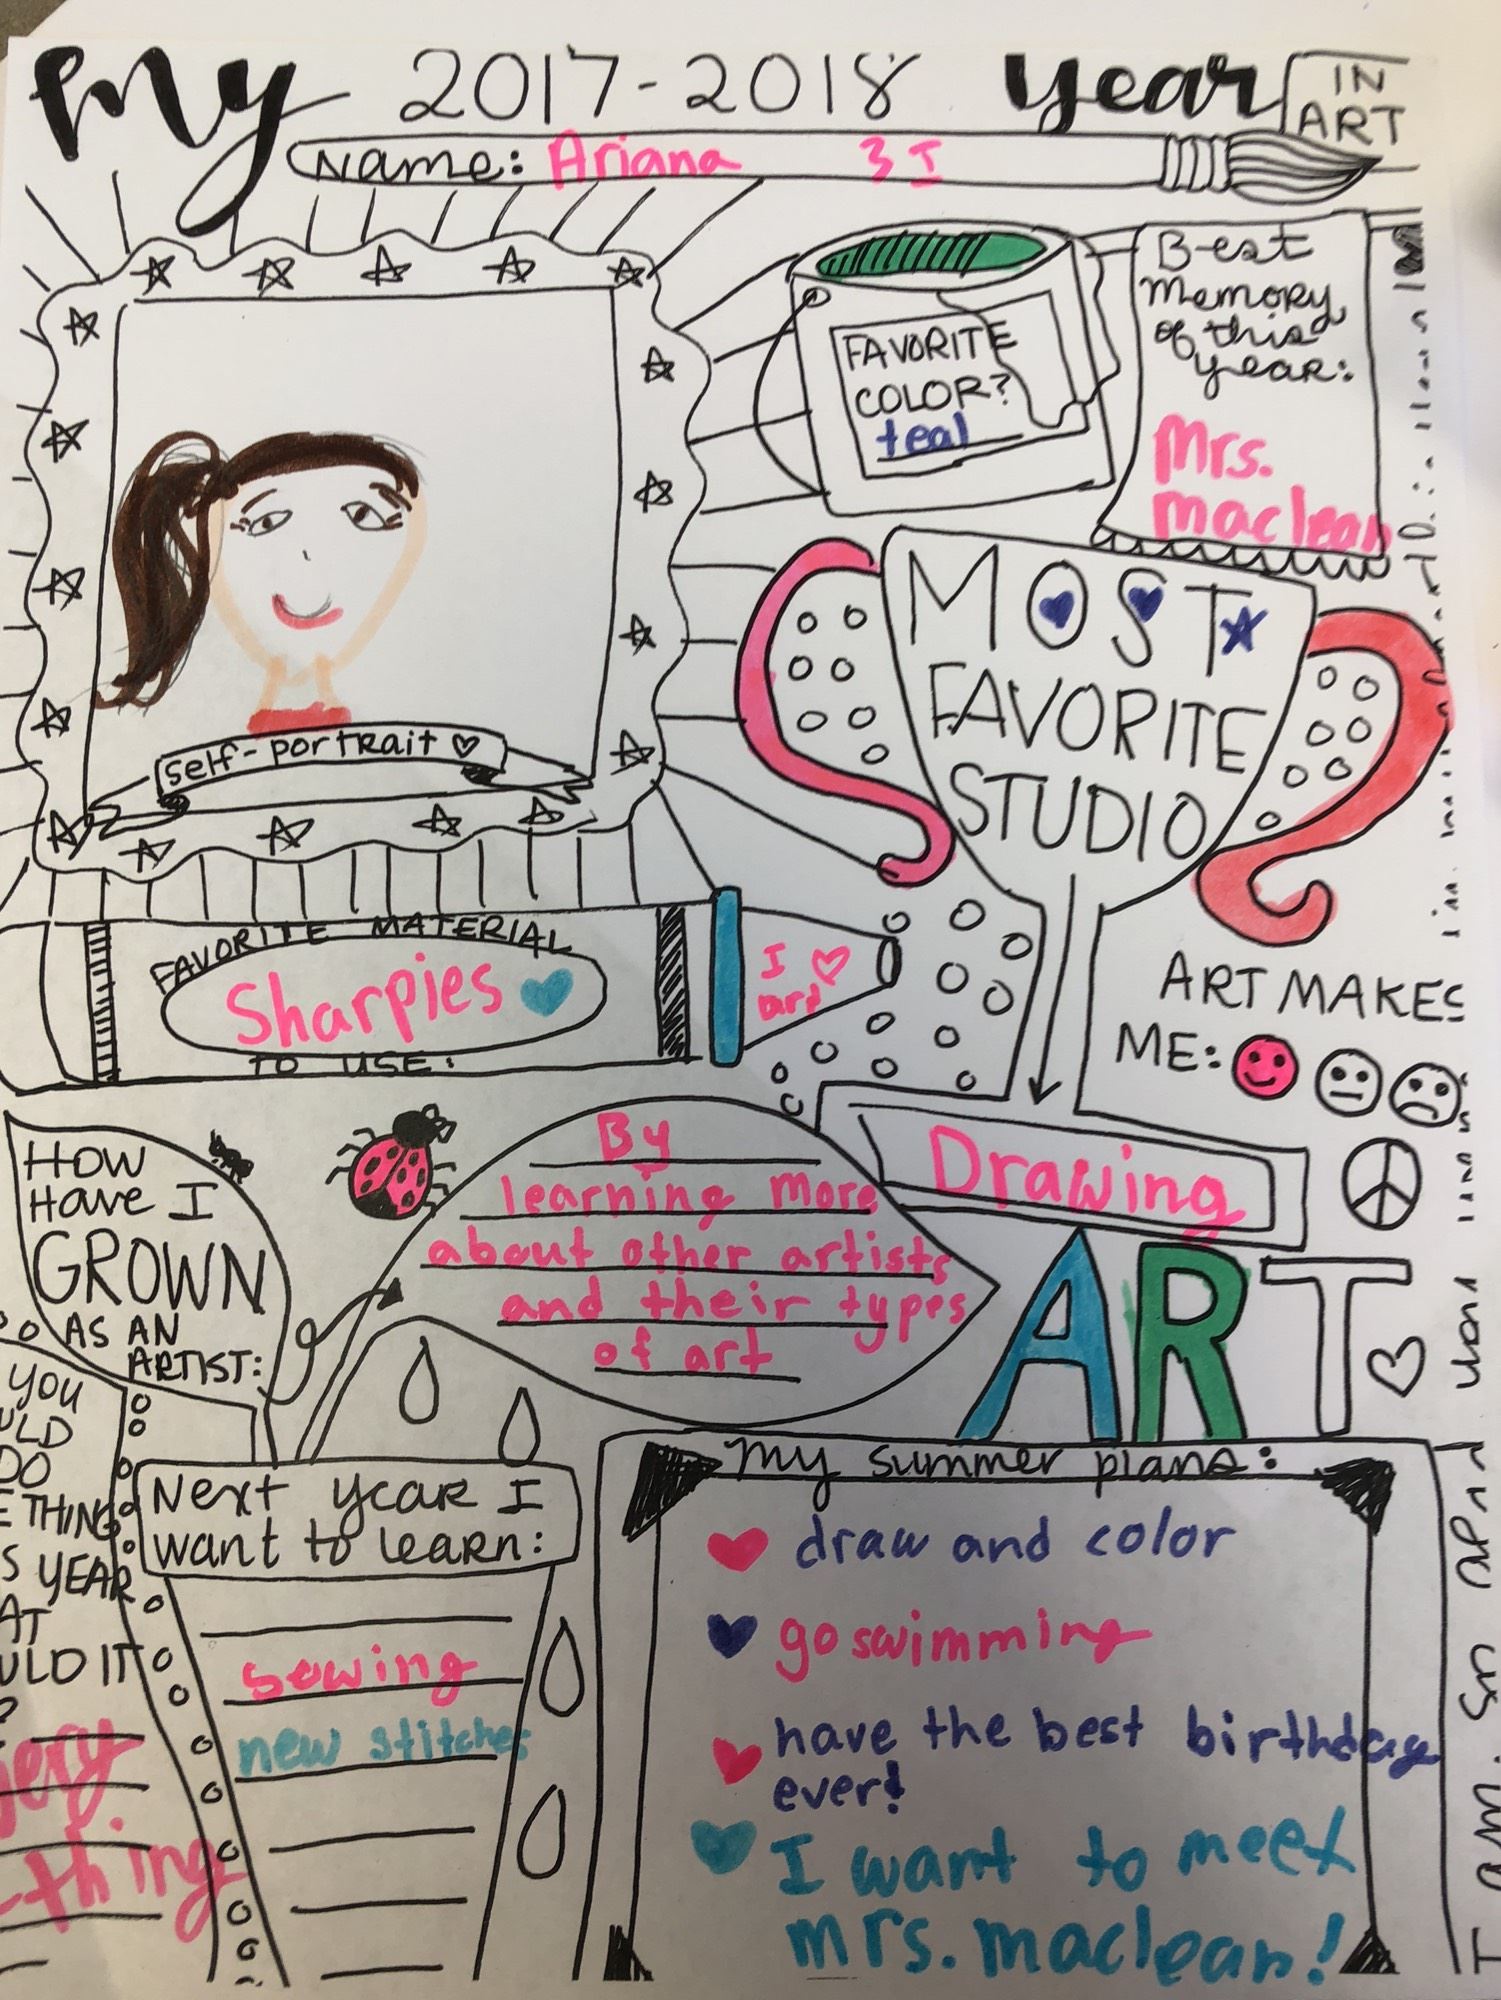 My 2017-2018 year IN
ART
Name: Ariana 3 I
FAVORITE
COLOR?
teal
Best
Memory
of this
year:
Mrs.
maclean
self-portrait
MOST
FAVORITE
STUDIO
Drawing
FAVORITE MATERIAL
Sharpies
TO USE:
I
art
ART MAKES
ME:
HOW
Have I
GROWN
AS AN
ARTIST:
By
learning more
about other artists
and their types
of art
ART
YOU
DO
THING
YEAR
IT
thing
Next year I
want to learn:
sewing
new stitches
My summer plans:
draw and color
go swimming
have the best birthday
ever!
I want to meet
mrs. maclean!